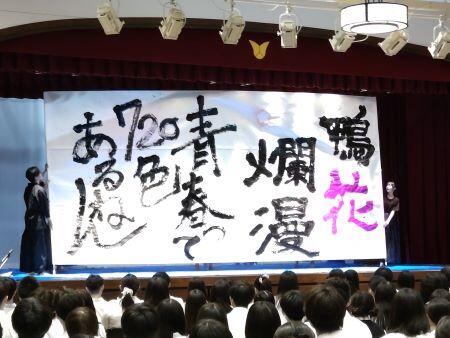 鴨花
爛漫
青春って
720色
あるねん